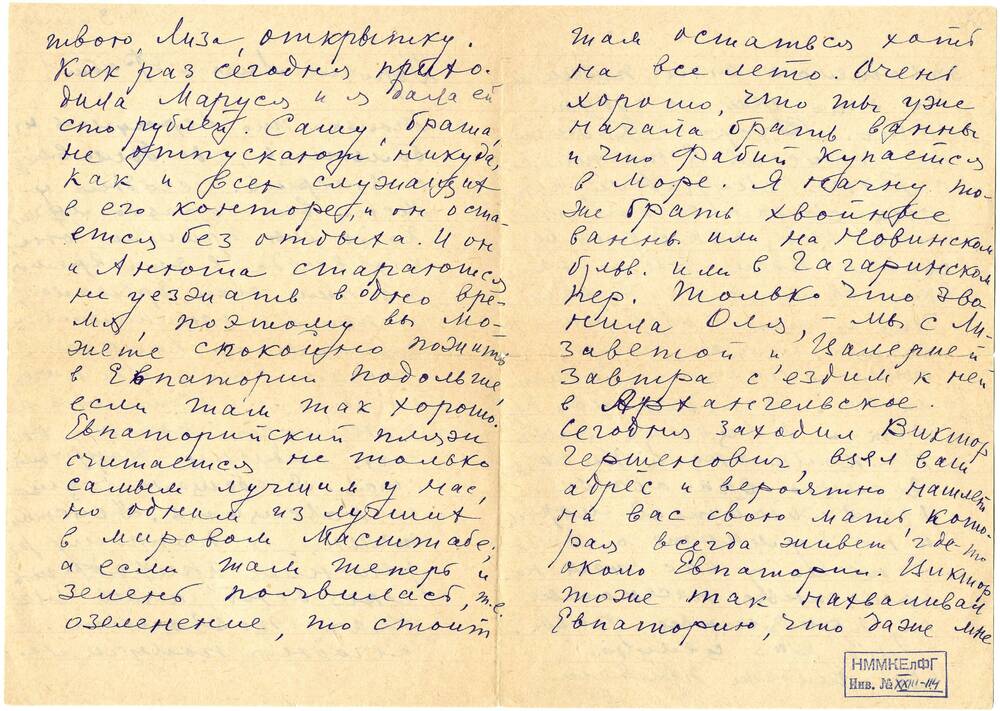 твою, Лиза, открытку.
Как раз сегодня прихо-
дила Маруся и я дала ей
сто рублей. Сашу, брата,
не отпускают никуда,
как и всех служащих
в его конторе, и он оста
ется без отдыха. И он
и Анюта стараются
не уезжать в одно вре-
мя, поэтому вы мо-
жете спокойно пожить
в Евпатории подольше,
если там так хорошо.
Евпаторийский пляж
считается не только
самым лучшим у нас,
но одним из лучших
в мировом масштабе,
а если там теперь и
зелень появилась, т.е.
озеленение, то стоит
там остаться хоть
на все лето. Очень
хорошо, что ты уже
начала брать ванны
и что Фабий купается
в море. Я начну то-
же брать хвойные
ванны или на Новинском
бульв. или в Гагаринском
пер. Только что зво
нила Оля, – мы с Ли
заветой и Валерией
завтра с'ездим к ней
в Архангельское.
Сегодня заходил Виктор
Гершенович, взял ваш
адрес и вероятно нашлет
на вас свою мать, кото-
рая всегда живет где-то
около Евпатории. Виктор
тоже так нахваливал
Евпаторию, что даже мне
НММКЕлФГ
Инв. № XXIII-114